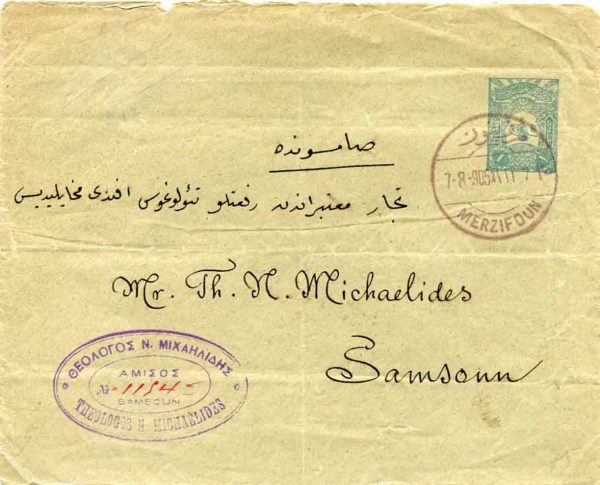 صامسونده
تجار معتبراندن رفعتلو تئولوغوس افندی مخایلیدیس
7-8-905
MERZIFOUN
Mr. Th. N. Michaelides
Samsoun
ΘΕΟΛΟΓΟΣ Ν. ΜΙΧΑΗΛΙΔΗΣ
ΑΜΙΣΟΣ
№ 1154
SAMSOUN
THEOLOGOS N MICHAELIDES